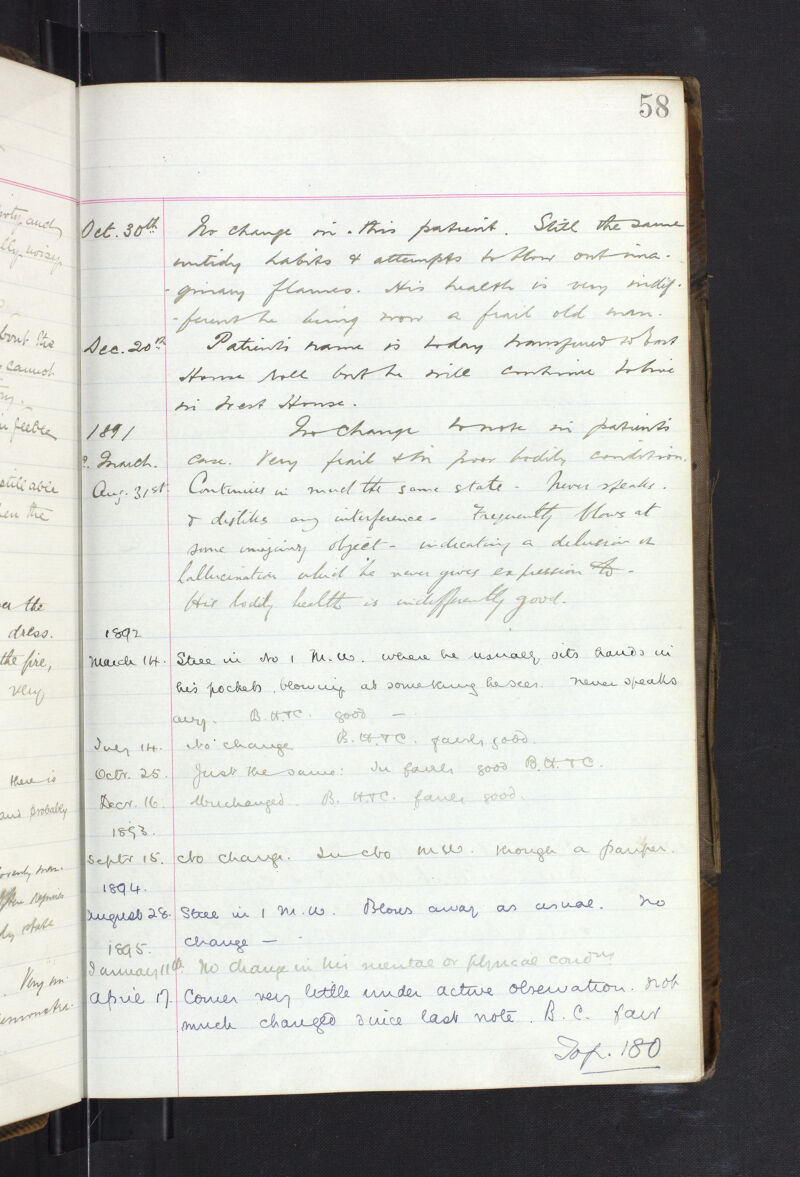 58
Oct. 30th No change in this patient. Still the same
untidy habits & attempts to blow out ima-
-ginary flames. His health is very indif-
-ferent he being now a frail old man.
Dec. 20th Patient's name is today transferred to East
House Roll but he will continue to live
in West House.
1891 No change to note in patient's
March. case. Very frail & in poor bodily condition.
Aug. 31st Continues in much the same state - Never speaks.
& dislikes any interference - Frequently blows at
some imaginary object - indicating a delusion or
hallucination which he never gives expression to -
His bodily health is indifferently good.
1892
March 14. Still in No 1 M.W. where he usually sits hands in
his pockets, blowing at something he sees. Never speaks
any. B.H.&C. good —
July 14. No change B.H.&C. fairly good.
Octr. 25. Just the same: In fairly good B.H.&C.
Decr. 16. Unchanged. B.H.&C. fairly good.
1893.
Septr 15. No change. In No M.W. though a pauper.
1894.
August 28. Still in 1 M.W. Blows away as usual. No
change —
1895.
January 11th No change in his mental or physical condn
April 17. Comes very little under active observation. Not
much changed since last note. B.C. fair
To p. 180
and
lly noisy
bout the
cannot
feeble
still able
the
the
dress.
the fire,
very
there is
and probably
state
Very